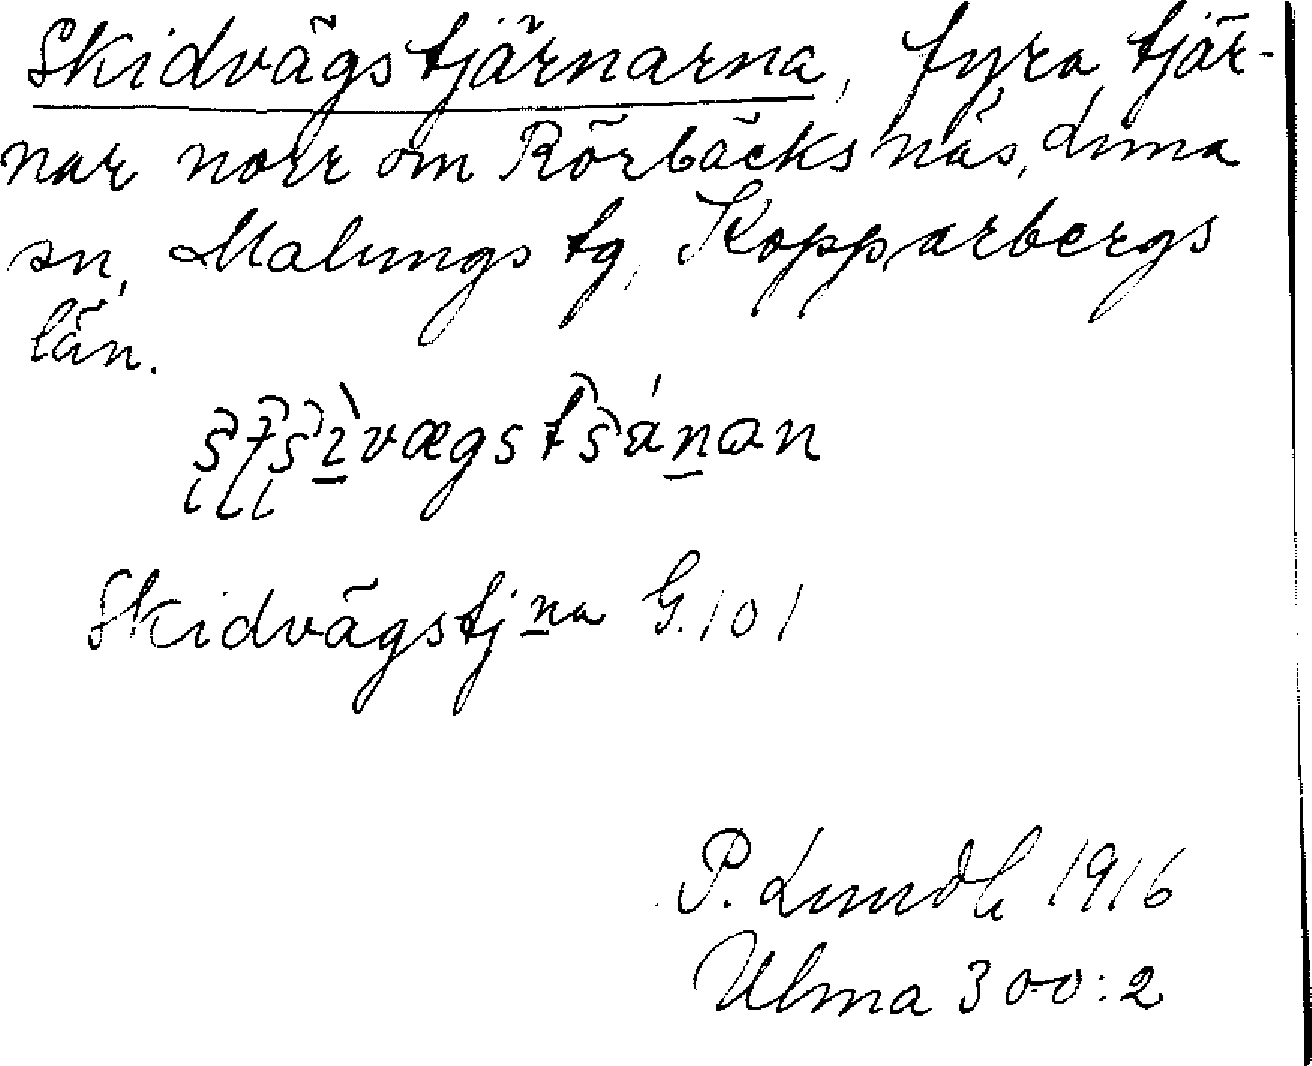 Skidvägstjärnarna, fyra tjär-
nar norr om Rörbäcksnäs, Lima
sn, Malungs tg, Kopparbergs
län.
Skidvägstjna G. 101
P. Lundh 1916
Ulma 300:2